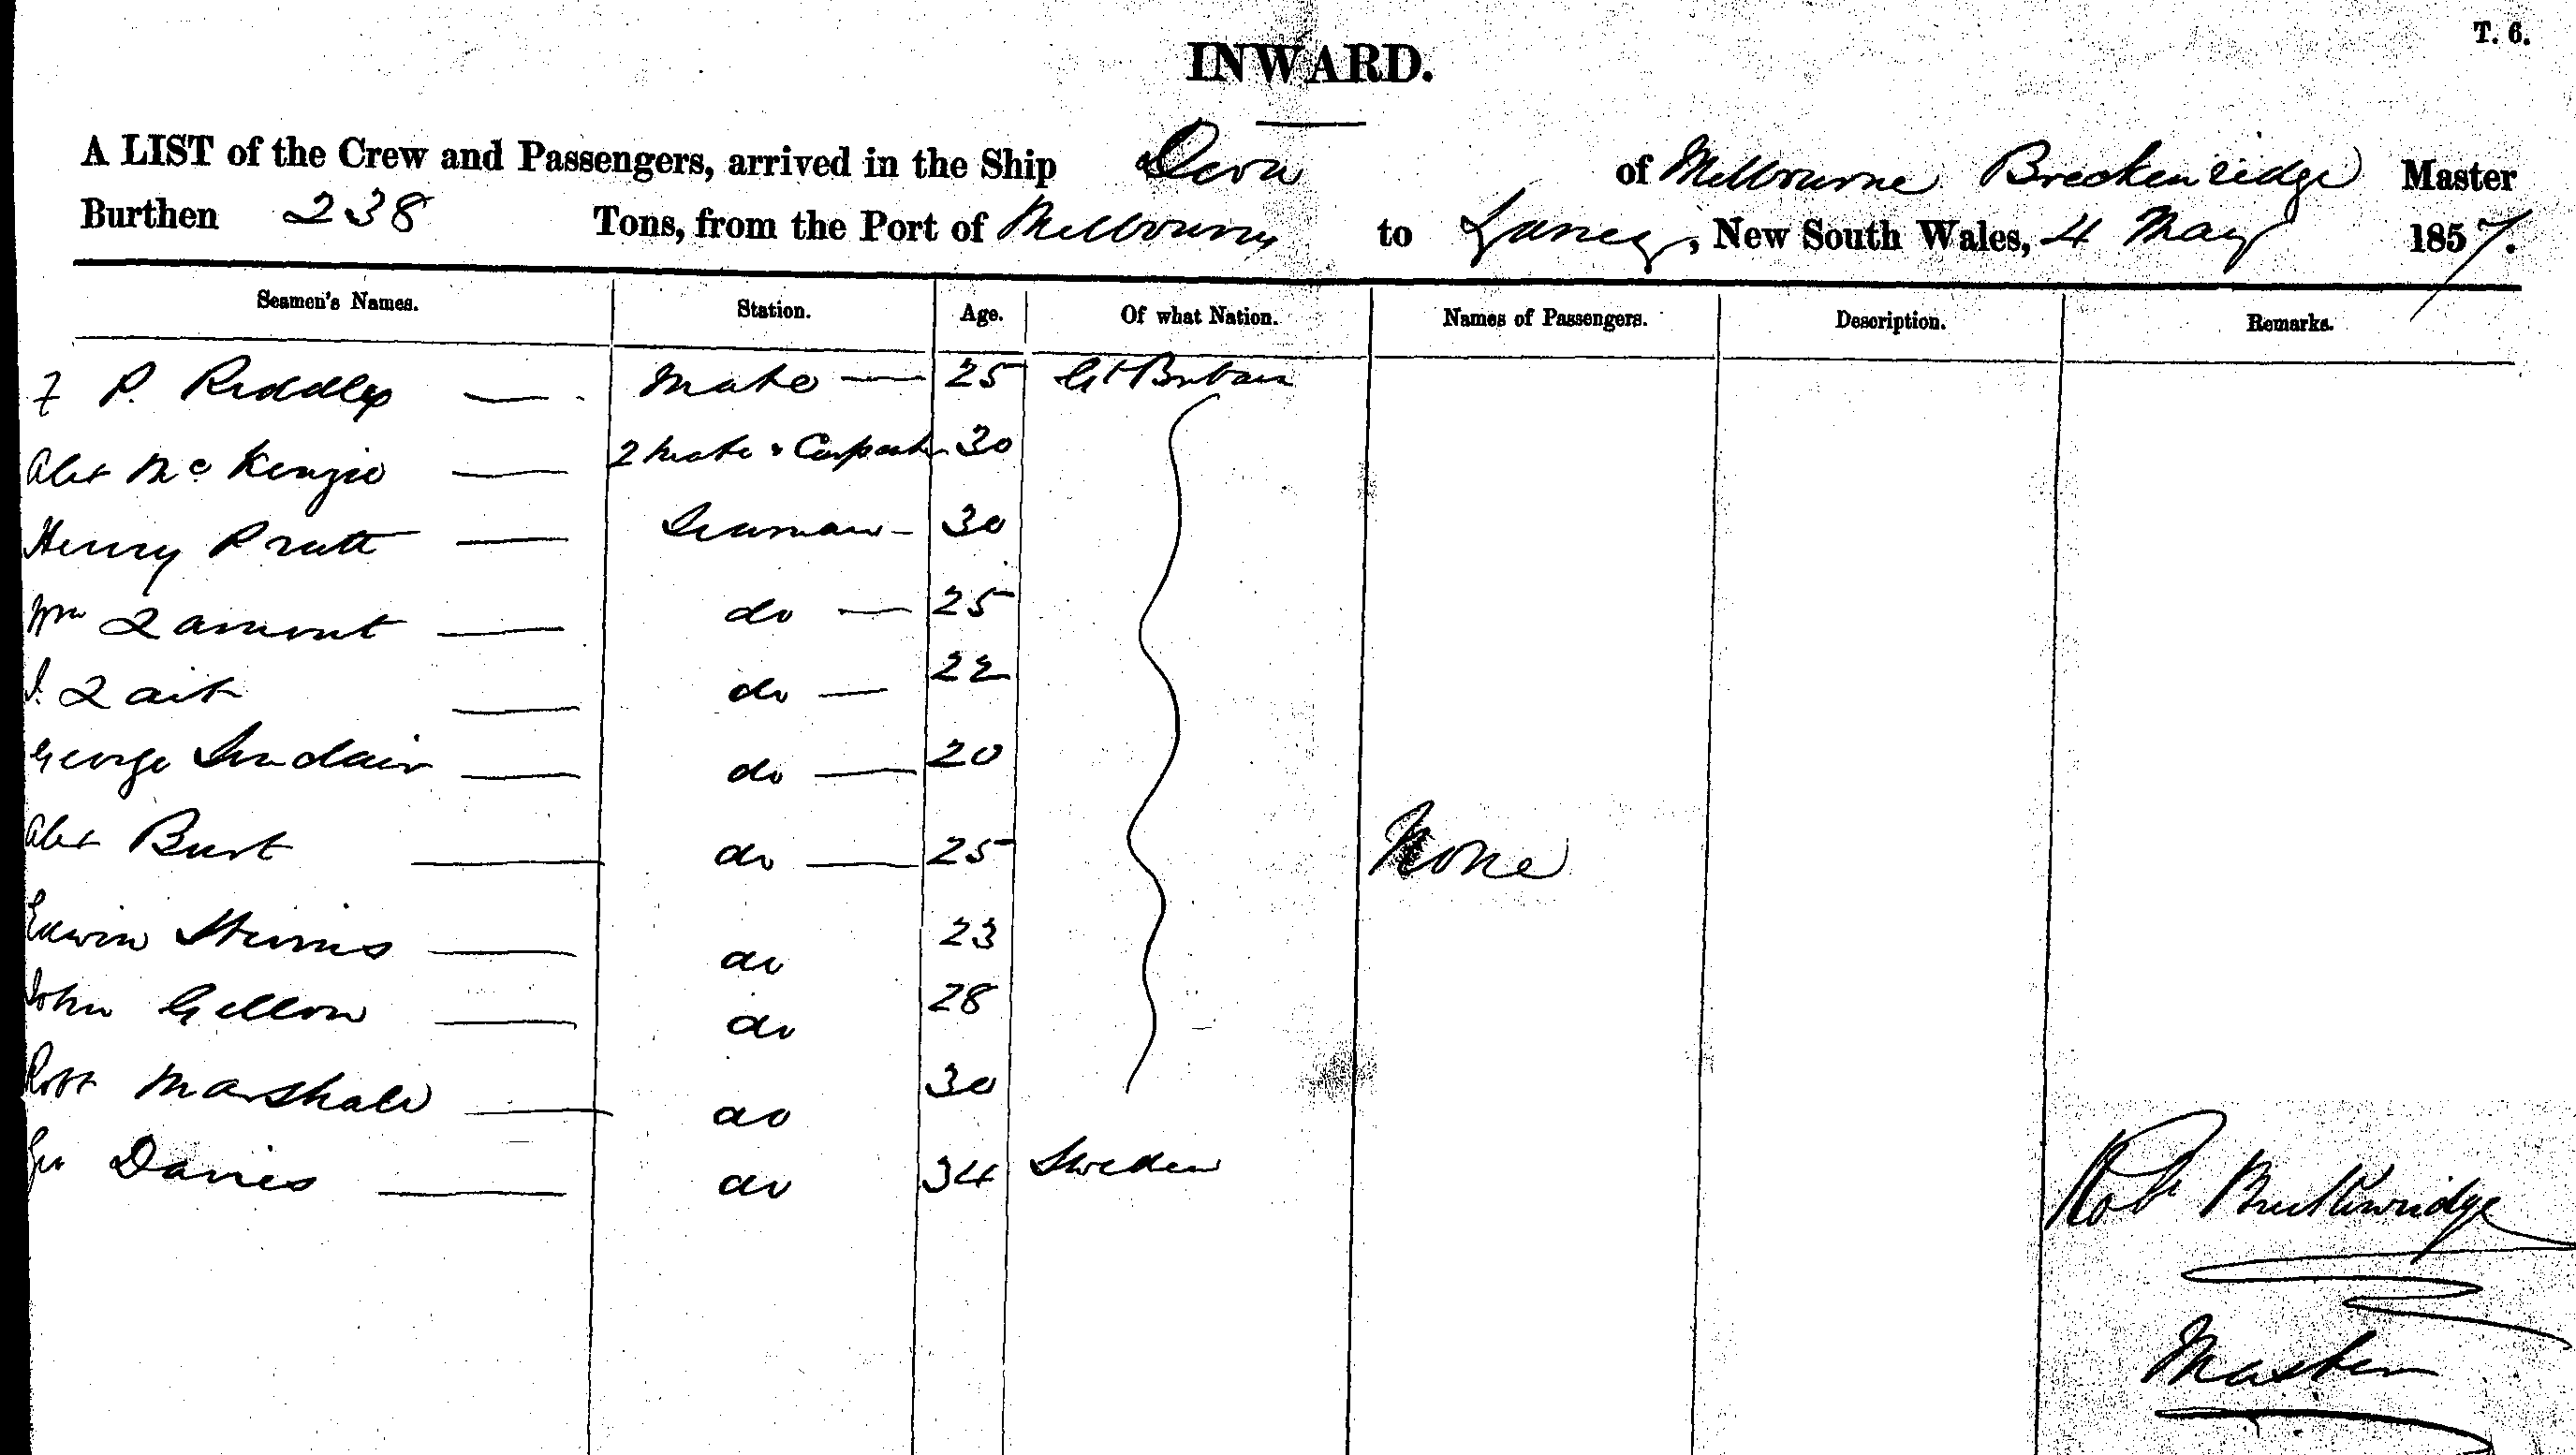 T. 6.
INWARD.
A LIST of the Crew and Passengers, arrived in the Ship of Melbourne Breckenridge Master
Burthen 238 Tons, from the Port of Melbourne to , New South Wales, 4 May 1857.
Seamen's Names. Station. Age. Of what Nation. Names of Passengers. Description. Remarks.
P. Riddley Mate 25 Gt Britain
Alex McKenzie 2 Mate & Carpenter 30
Henry Pratt Seaman 30
Wm Lamont do 25
Lait do 22
George Sinclair do 20
Alex Burt do 25 None
Edwin do 23
John Gellon do 28
Robt Marshall do 30
Geo Davies do 34 Sweden
Robt Breckenridge
Master